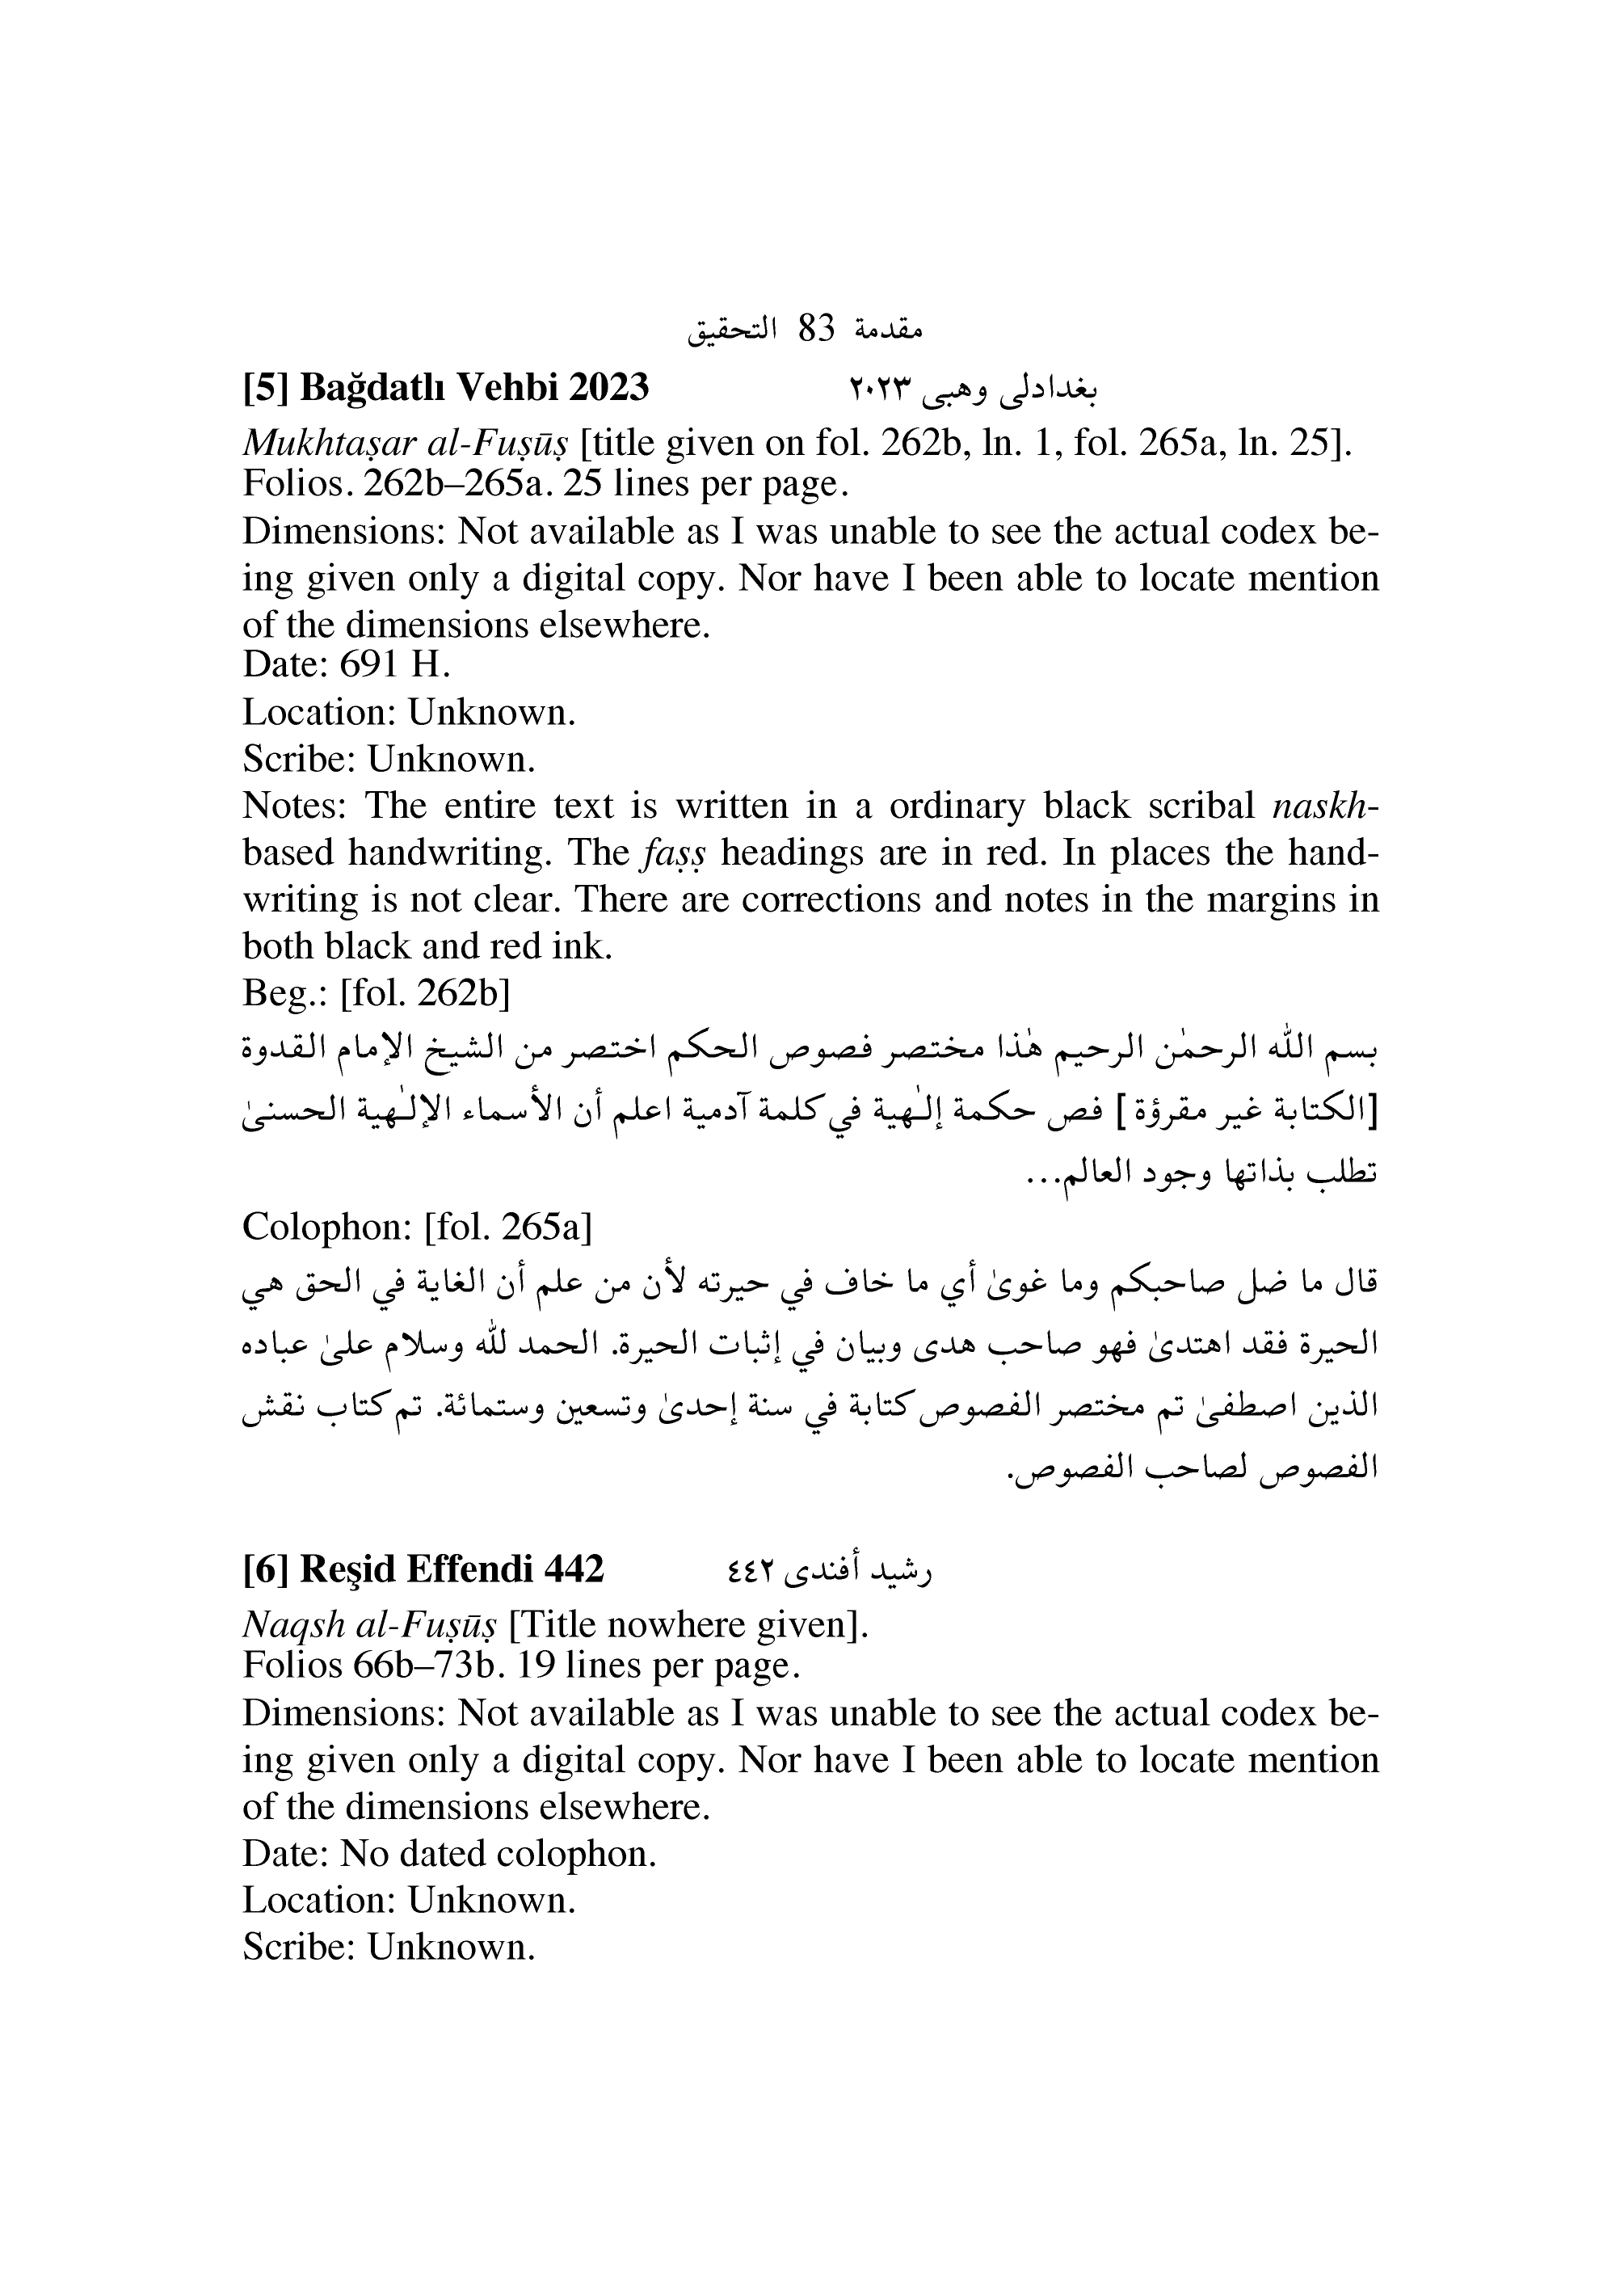 مقدمة 83 التحقيق
[5] Bağdatlı Vehbi 2023 بغدادلى وهبى ٢٠٢٣
Mukhtaṣar al-Fuṣūṣ [title given on fol. 262b, ln. 1, fol. 265a, ln. 25].
Folios. 262b–265a. 25 lines per page.
Dimensions: Not available as I was unable to see the actual codex be-
ing given only a digital copy. Nor have I been able to locate mention
of the dimensions elsewhere.
Date: 691 H.
Location: Unknown.
Scribe: Unknown.
Notes: The entire text is written in a ordinary black scribal naskh-
based handwriting. The faṣṣ headings are in red. In places the hand-
writing is not clear. There are corrections and notes in the margins in
both black and red ink.
Beg.: [fol. 262b]
بسم الله الرحمٰن الرحيم هٰذا مختصر فصوص الحكم اختصر من الشيخ الإمام القدوة
[الكتابة غير مقرؤة] فص حكمة إلـٰهية في كلمة آدمية اعلم أن الأسماء الإلـٰهية الحسنىٰ
تطلب بذاتها وجود العالم...
Colophon: [fol. 265a]
قال ما ضل صاحبكم وما غوىٰ أي ما خاف في حيرته لأن من علم أن الغاية في الحق هي
الحيرة فقد اهتدىٰ فهو صاحب هدى وبيان في إثبات الحيرة. الحمد لله وسلام علىٰ عباده
الذين اصطفىٰ تم مختصر الفصوص كتابة في سنة إحدىٰ وتسعين وستمائة. تم كتاب نقش
الفصوص لصاحب الفصوص.
[6] Reşid Effendi 442 رشيد أفندى ٤٤٢
Naqsh al-Fuṣūṣ [Title nowhere given].
Folios 66b–73b. 19 lines per page.
Dimensions: Not available as I was unable to see the actual codex be-
ing given only a digital copy. Nor have I been able to locate mention
of the dimensions elsewhere.
Date: No dated colophon.
Location: Unknown.
Scribe: Unknown.